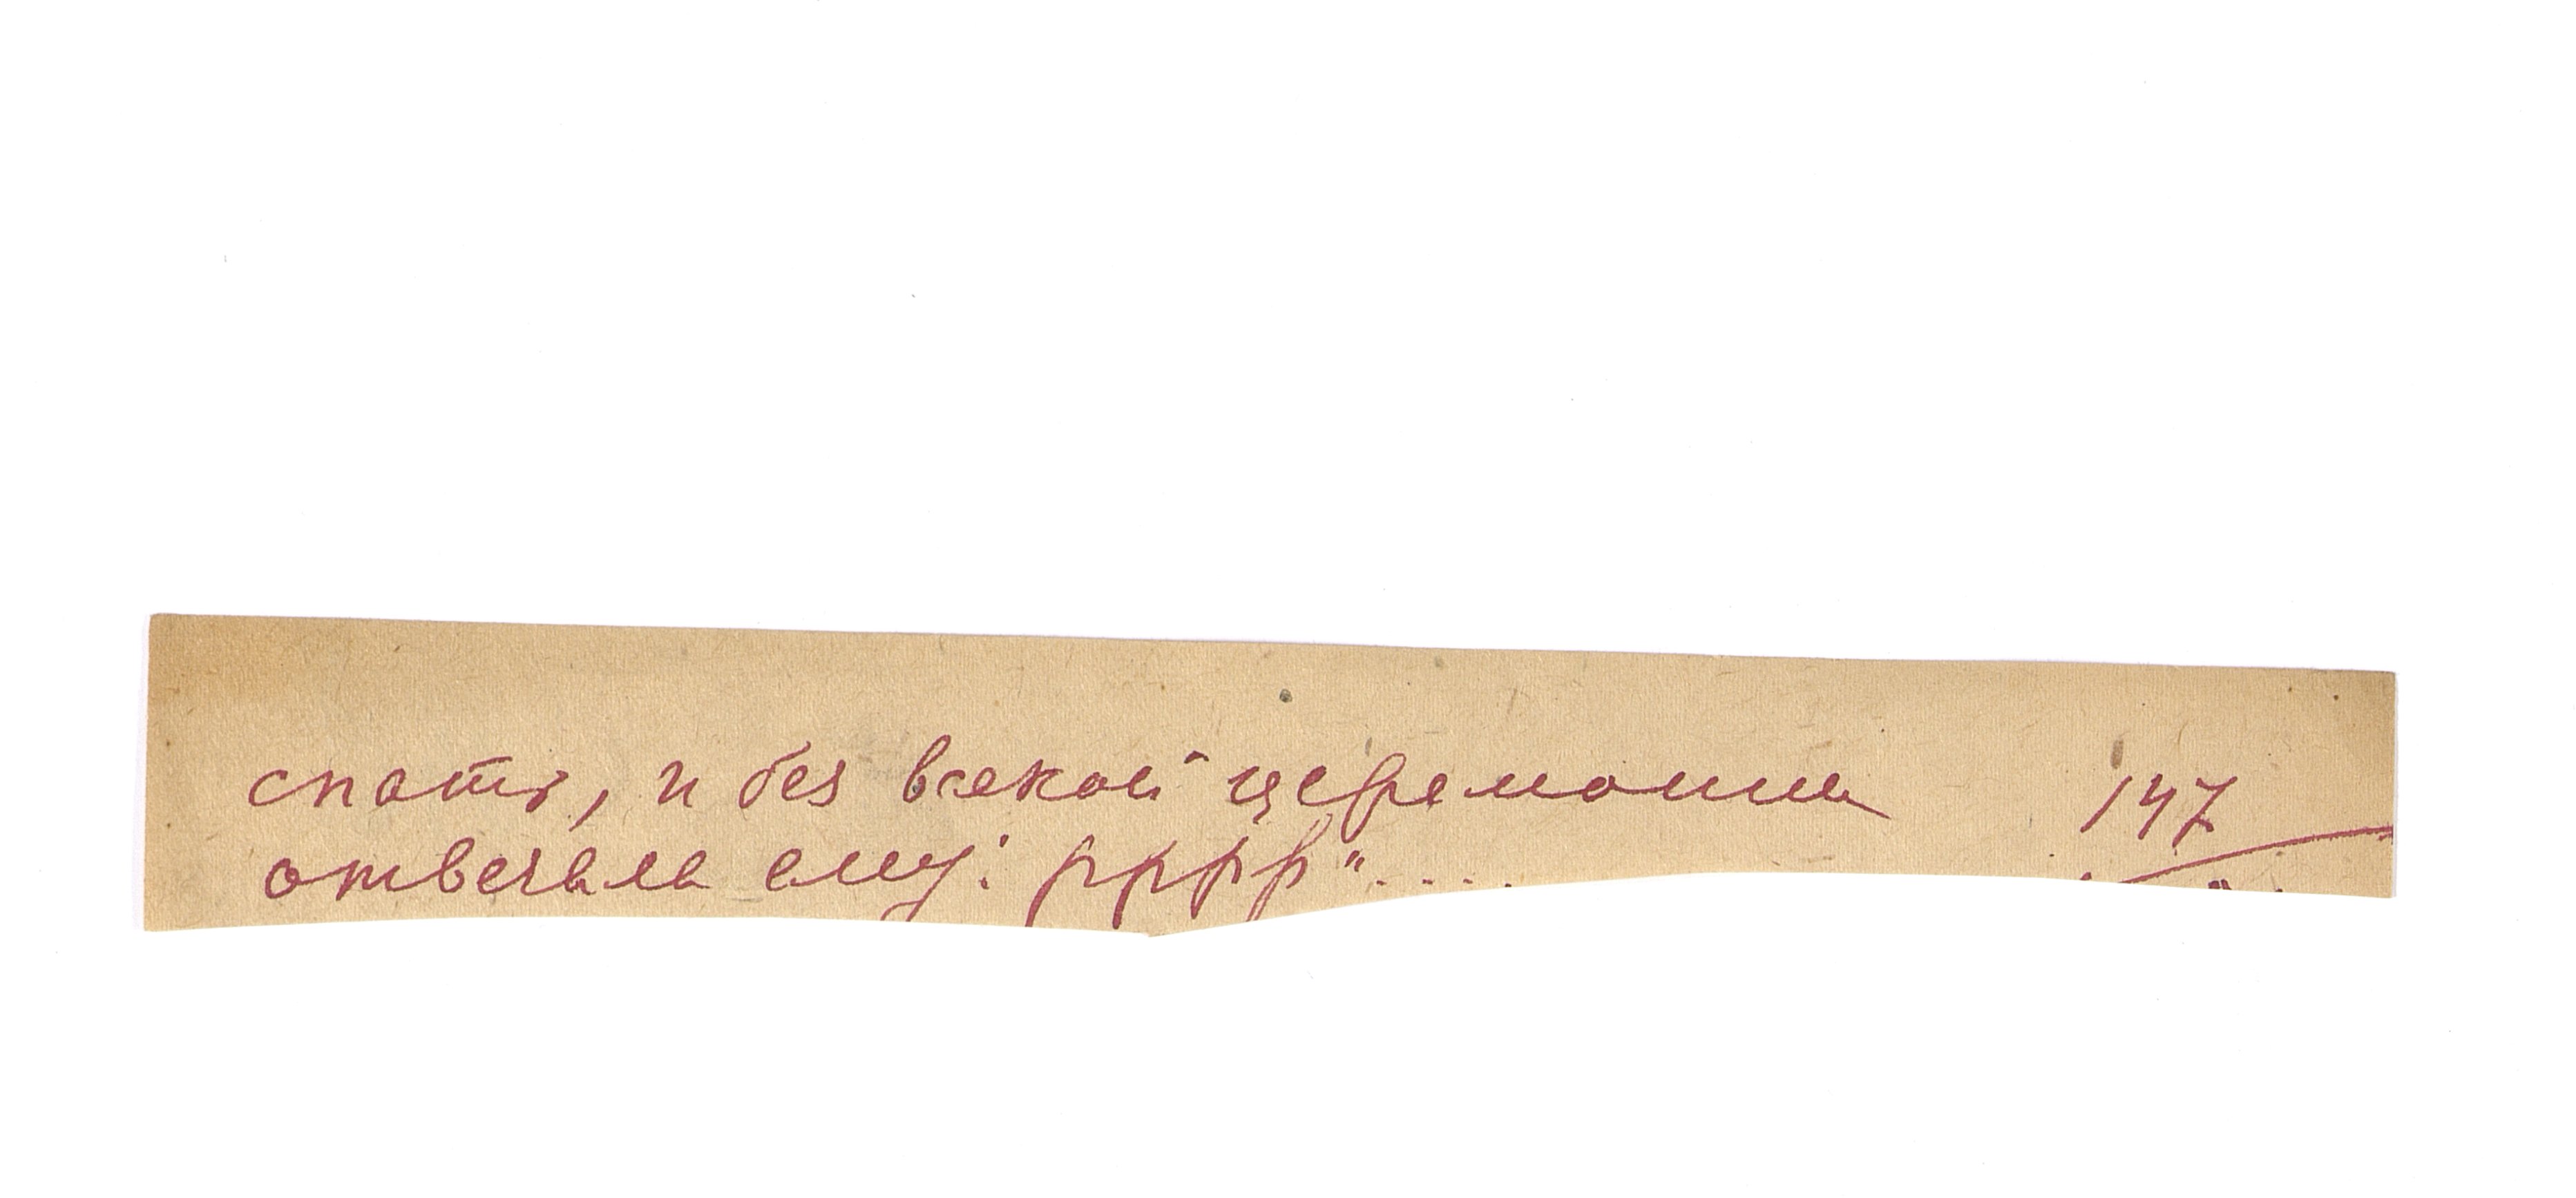 спать, и без всякой церемонии 147
отвечала ему: рррр"....